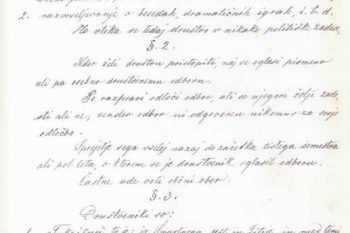 2. razveseljevanji o besedah, dramatičnih igrah, i. t. d.
Ne vtika se tedaj društvo v nikake politiške zadeve.
§. 2.
Kdor želi društvu pristopiti, naj se oglasi pismeno
ali pa osebno društvenemu odboru.
Po razpravi odloči odbor, ali se njegovi želji zado-
sti ali ne, vendar odbor ni odgovoren nikomur za svojo
odločbo.
Sprejetje sega vselej nazaj do začetka tistega semestra
ali pol leta, v kterem se je društvenik oglasil odboru.
Častne ude voli občni zbor.
§. 3.
Društveniki so: